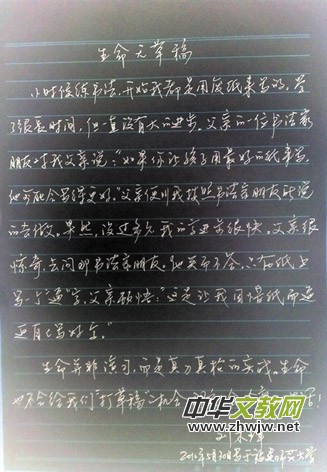 生命无草稿
小时候练书法,开始我都是用废纸来写的,学
了很长时间,但一直没有大的进步。父亲的一位书法家
朋友对我父亲说:“如果你让孩子用最好的纸来写,
他可能会写得更好。”父亲便叫我按照书法家朋友所说
的去做。果然,没过多久我的字进步很快。父亲很
惊奇,去问那书法家朋友。他笑而不答,只在纸上
写一个“逼”字,父亲顿悟:“这是让我因惜纸而逼
迫自己写好字。”
生命并非演习,而是真刀真枪的实战。生命
也不会给我们“打草稿”的机会
2010年5月30日写于
中华文教网
www.zhwjw.com